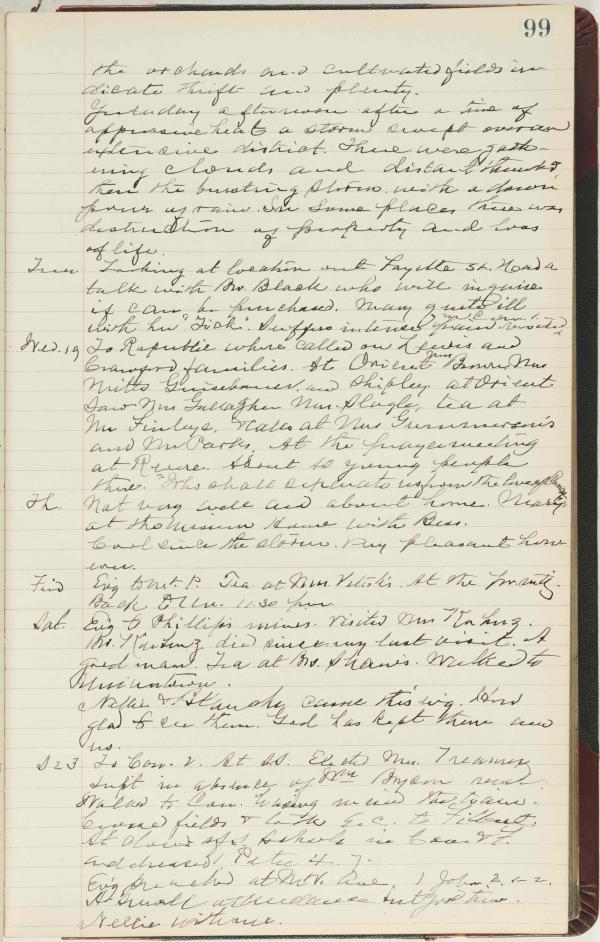 99
the orchards and cultivated fields in
dicate thrift and plenty.
Yesterday afternoon after a time of
oppressive heat a storm swept over an
extensive district. There were gath-
ering clouds and distant thunder
then the bursting storm with a down
pour of rain. In some places there was
destruction of property and loss
of life.
Tues Looking at location out Fayette St. Had a
talk with Bro. Black who will inquire
if can be purchased. Mary quite ill
with her "Tick". Suffers intense pain.
Wed. 19 To Republic where called on Lewis and
Crawford families. At Orient Mrs Brown Mrs
Mitts and Shipley at Orient
Saw Mrs Gallagher Mrs. Slagle, tea at
Mr Finleys, calls at Mrs
and Mr Parks. At the prayermeeting
at Revere. About 40 young people
there. "Who shall separate us from the love of
Th. Not very well and about home. Mary
at the Mission Home with Bess.
Cool since the storm. Very pleasant how
ever.
Frid Evg to Mt. P. Tea at Mrs. At the
Back to Un. 11.30 p.m.
Sat. Evg to Phillips mines. Visited Mrs
Bro. died since my last visit. A
good man. Tea at Bro. Shaws. Walked to
Uniontown.
Nellie & came this evg. How
glad to see them. God has kept them and
us.
S 23 To Con. V. At S.S. Elected Mrs.
Supt in absence of Wm Bryson
Walked to Con. having missed the train.
Crossed fields & to
At close of S Schools in
addressed 1 Peter 4. 7.
Evg preached at Mt V. Ave 1 John 2.
A small attendance but good time.
Nellie with me.